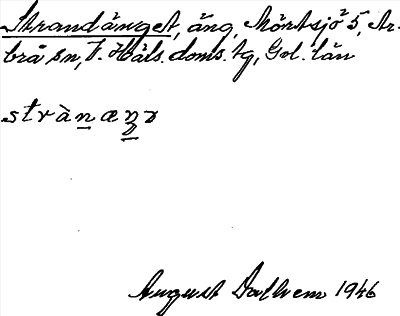 Strandänget, äng, Mörtsjö 5, Ar-
brå sn, V. Häls. doms. tg, Gvl. län
strànæŋɜ
August Dalhem 1946